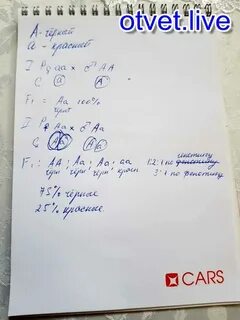 otvet.live
A - чёрный
a - красный
I P ♀ aa x ♂ AA
G (a) (A)
F₁ = Aa 100%
чёрн
II P ♀ Aa x ♂ Aa
G (A)(a) (A)(a)
F₂: AA; Aa; Aa; aa 1:2:1 по генотипу
чёрн чёрн чёрн красн. 3:1 по фенотипу
75% чёрные
25% красные.
CARS